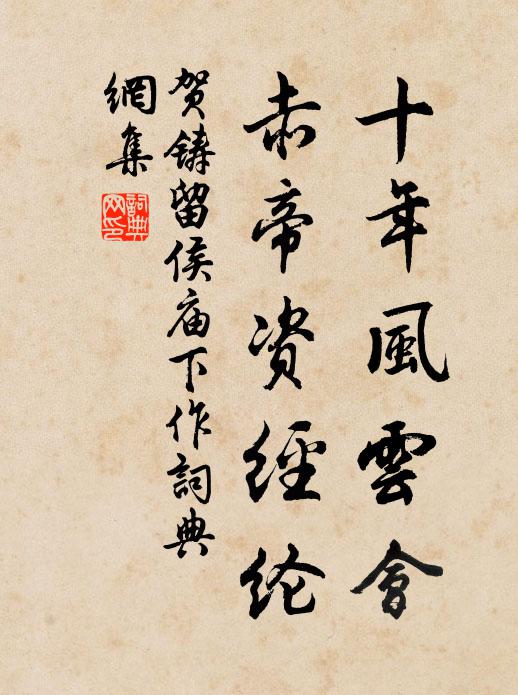 十年風雲會
赤帝資經纶
贺鑄留侯庙下作詞典
網集
詞典
网印